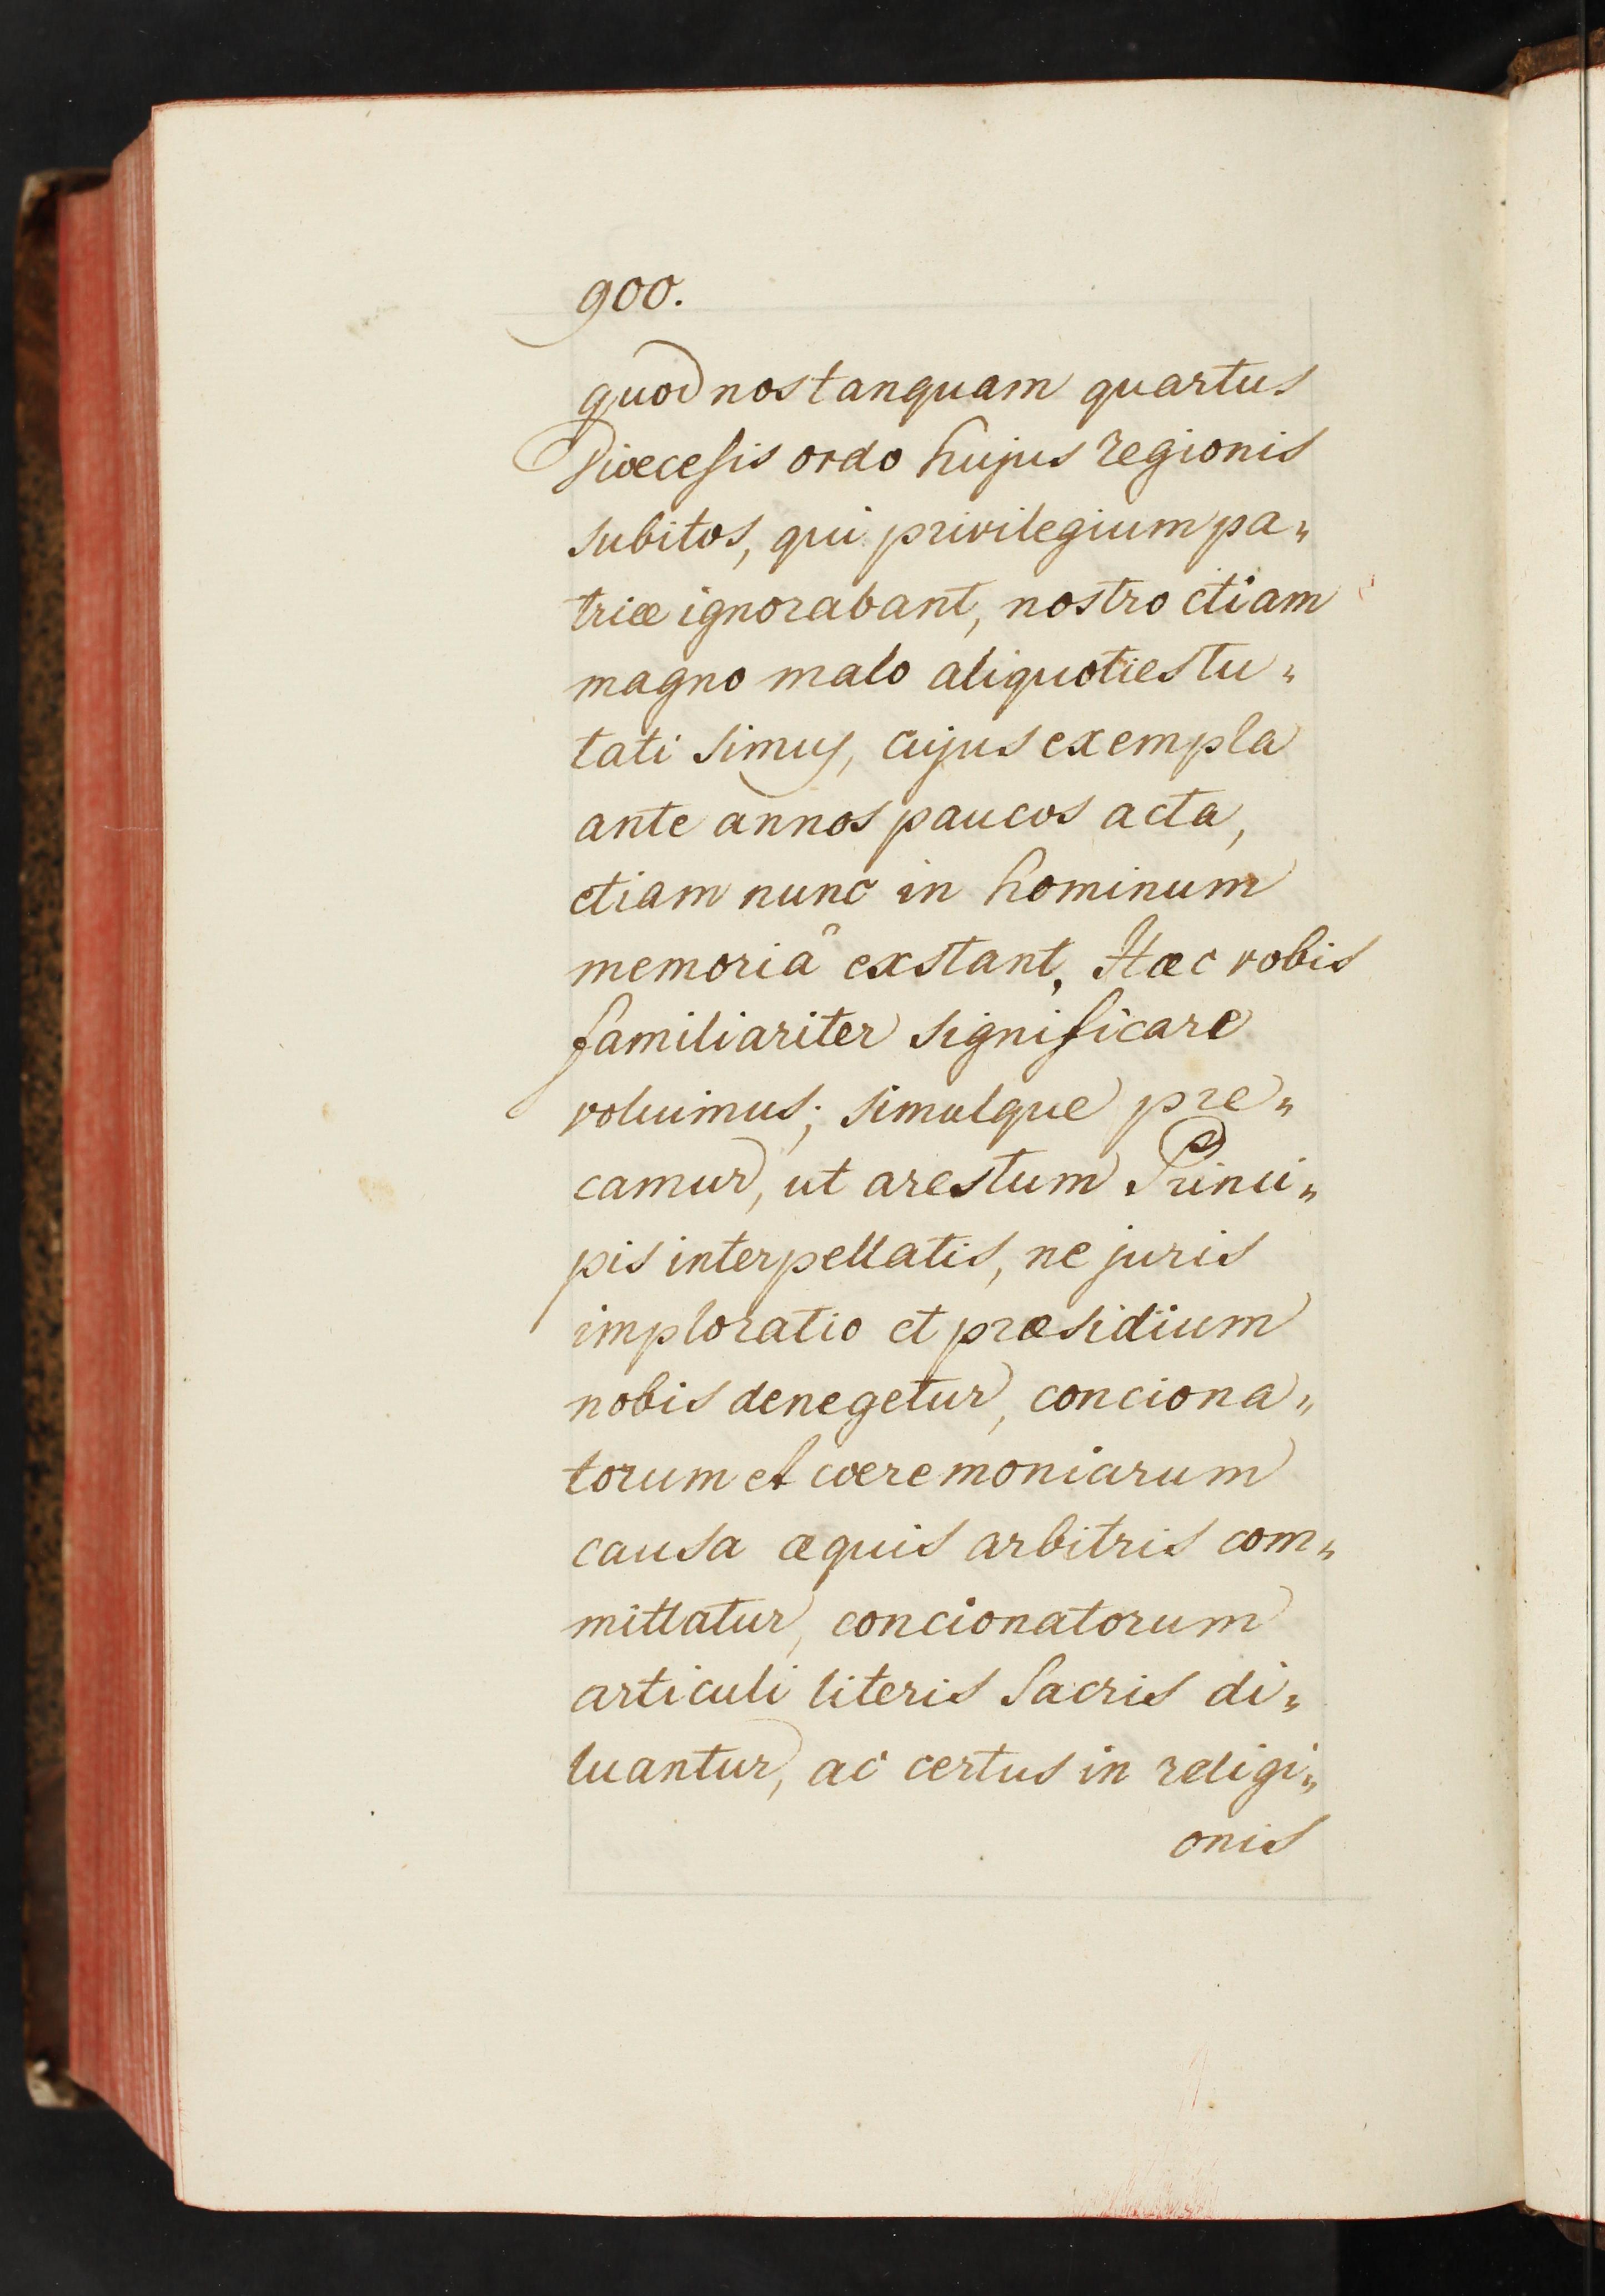 900.
quod nos tanquam quartus
Dioecesis ordo hujus regionis
subitos, qui privilegium pa„
triae ignorabant, nostro etiam
magno malo aliquoties tu„
tati simus, cujus exempla
ante annos paucos acta,
etiam nunc in hominum
memoriâ exstant. Haec vobis
familiariter significare
voluimus; simulque pre„
camur, ut arestum Princi„
pis interpellatis, ne juris
imploratio et praesidium
nobis denegetur, conciona„
torum et coeremoniarum
causa aequis arbitris com„
mittatur, concionatorum
articuli literis Sacris di„
luantur, ac certus in religi„
onis